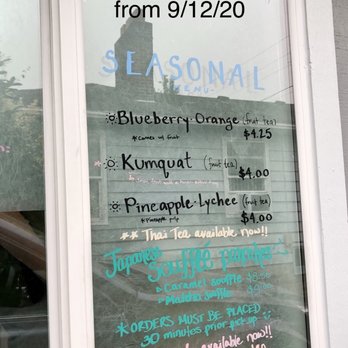 from 9/12/20
SEASONAL
MENU
Blueberry Orange (fruit tea)
* Comes w/ fruit $4.25
Kumquat (fruit tea)
$4.00
Pineapple Lychee (fruit tea)
* Pineapple pulp $4.00
** Thai Tea available now!!
Japanese
Soufflé Pancakes
Caramel souffle
Matcha souffle
* ORDERS MUST BE PLACED
30 minutes prior pick up
available now!!